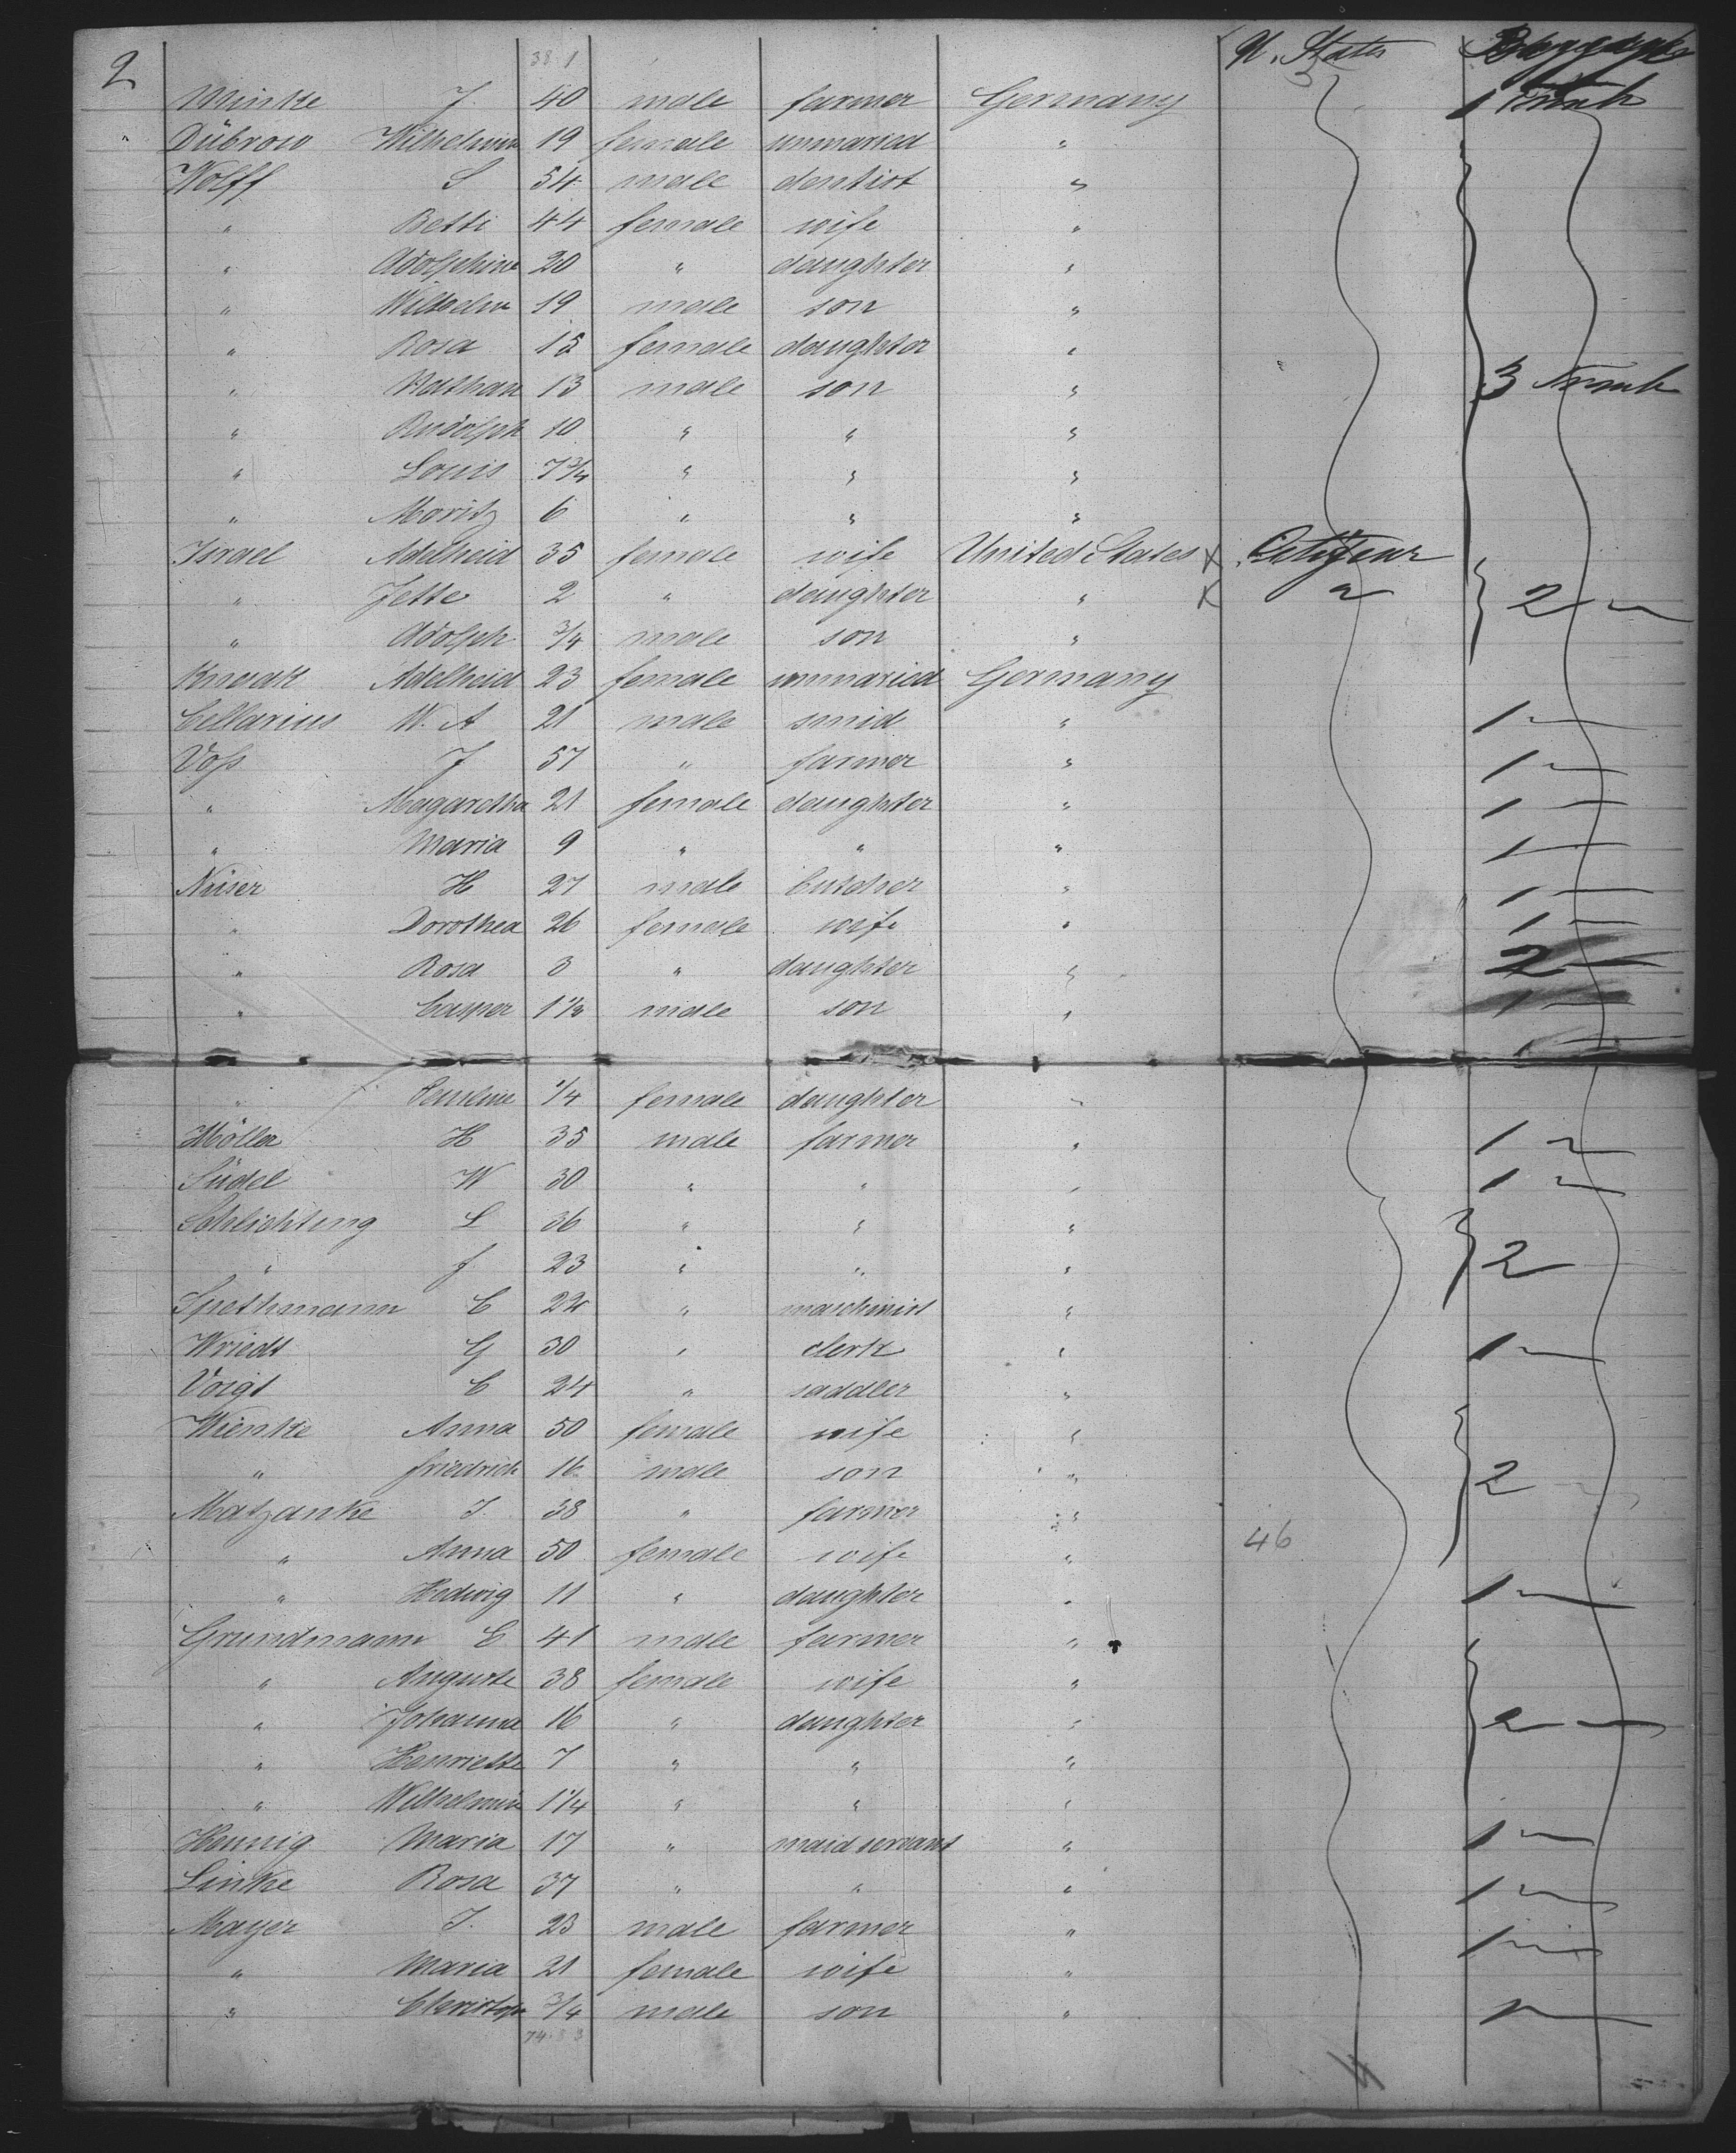 2 U. States Baggage
Minke J. 40 male farmer Germany 1 Trunk
" Dübrow Wilhelmin 19 female unmaried "
Wolff S 54 male dentist "
" Betti 44 female wife "
" Adolphine 20 " daughter "
" Wilhelm 19 male son "
" Rosa 15 female daughter "
" Nathan 13 male son " 3 Trunk
" Rudolph 10 " " "
" Louis 7 3/4 " " "
" Moritz 6 " " "
Israel Adelheid 35 female wife United States X Citizens
" Jette 2 " daughter " X " 2 "
" Adolph 3/4 male son "
Adelheid 23 female unmaried Germany
Cellarius W. A 21 male smid " 1 "
Voss J 57 " farmer " 1 "
" Magaretha 21 female daughter " 1
" Maria 9 " " " 1
Naiser H 27 male butcher " 1
" Dorothea 26 female wife " 1
" Rosa 3 " daughter " 2
" Casper 1 1/2 male son " 1
" Pauline 1/4 female daughter "
Möller H 35 male farmer " 1 "
Südel W 30 " " " 1 "
Schlichting L 36 " " "
" f 23 " " " 2
Spethmann C 22 " maschinist "
Wriedt G 30 " clerk " 1 "
Voigt C 24 " saddler "
Wienke Anna 50 female wife "
" Friedrich 16 male son " 2
Matzanke J. 38 " farmer "
" Anna 50 female wife " 46
" Hedwig 11 " daughter " 1 "
Grundmann C 41 male farmer "
" Auguste 38 female wife "
" Johanna 16 " daughter " 2
" Henriette 7 " " "
" Wilhelmin 1 1/4 " " "
Hennig Maria 17 " maid servant " 1 "
Linke Rosa 37 " " " 1 "
Mayer J. 23 male farmer " 1 "
" Maria 21 female wife "
" Christoph 3/4 male son " 1